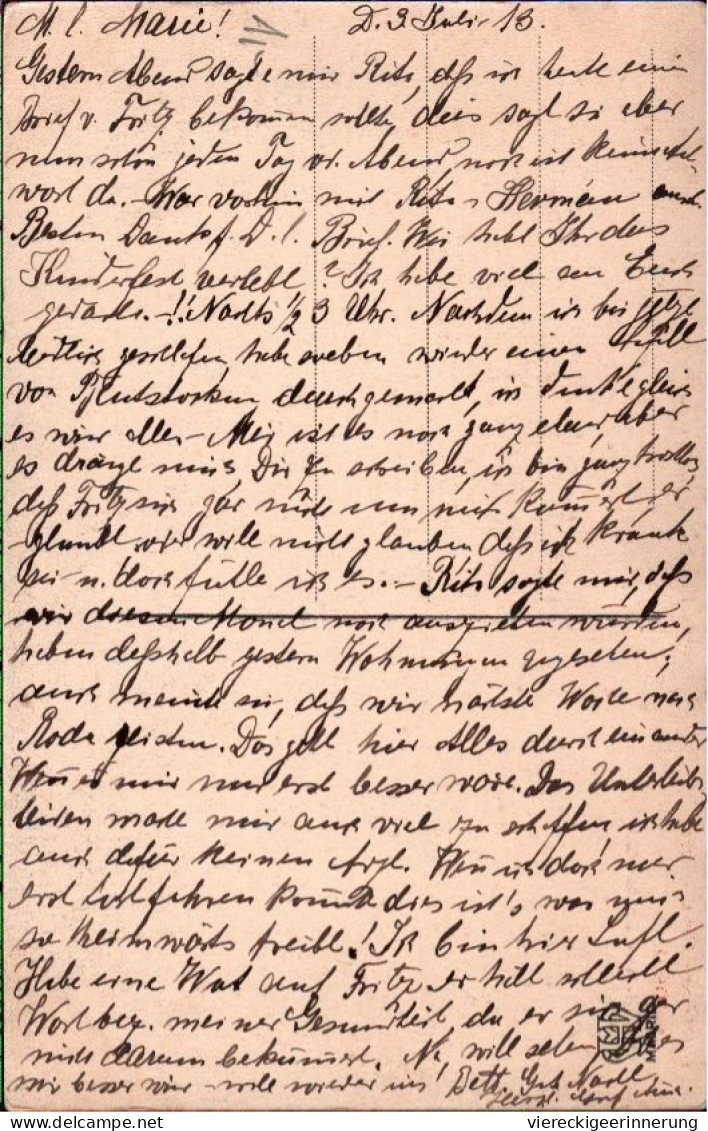 M. l. Marie! D. 3. Juli 13.
Gestern Abend sagte mir Rita, dß ich heute einen
Brief v. Fritz bekommen sollte, dies sagt sie aber
nun schon jeden Tag u. Abend, noch ist keine Ant-
wort da. - War vorhin mit Rita - Herman
Besten Dank f. D. l. Brief. Wie habt Ihr das
Kinderfest verlebt? Ich habe viel an Euch
gedacht. - !! Nachts ½ 3 Uhr. Nachdem ich bis jetzt
geschlafen, habe soeben wieder einen Anfall
von Blutstocken durchgemacht, ich denke gleich
es wär alle. - Mir ist es noch ganz elend, aber
es drängt mich, Dir zu schreiben, ich bin ganz trostlos,
daß Fritz sich gar nicht um mich kümmert, er
glaubt oder will nicht glauben daß ich krank
sei - u. doch fühle ich es. - Rita sagte mir, daß
wir diesen Monat noch ausziehen würden,
haben deßhalb gestern Wohnungen angesehen;
auch meinte sie, daß wir nächste Woche nach
Roda reisten. Das geht hier Alles durcheinander
Wenn es mir nur erst besser wäre. Das Unterleibs-
leiden macht mir auch viel zu schaffen, ich habe
auch dafür keinen Arzt. Wenn ich doch nur
erst fortfahren könnte, dies ist's was mich
so heimwärts treibt! Ich bin hier Luft.
Habe eine Wut auf Fritz, er hält
Wort bez. meiner Gesundheit, da er sich gar
nicht darum bekümmert. Na, will sehen
mir besser wär - will wieder ins Bett. Gute Nacht
Herzl. Gruß Anna.
viereckigeerinnerung